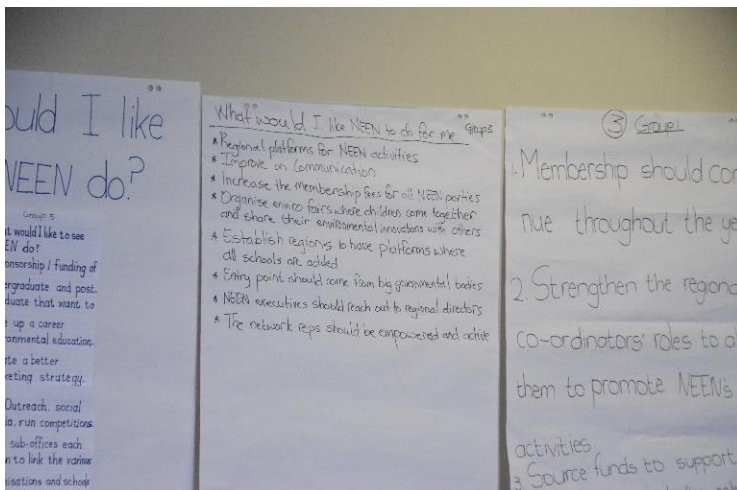 ould I like
NEEN do?
Group 5
t would I like to see
EN do?
onsorship / funding of
ergraduate and post.
duate that want to
e up a career
ronmental education.
te a better
keting strategy.
Outreach, social
ia, run competitions
sub-offices each
n to link the various
nisations and schools
What would I like NEEN to do for me Group 3
* Regional platforms for NEEN activities
* Improve on Communication
* Increase the membership fees for all NEEN parties
* Organise enviro fairs where children come together
and share their environmental innovations with others
* Establish regions to have platforms where
all schools are added
* Entry point should come from big governmental bodies
* NEEN executives should reach out to regional directors
* The network reps should be empowered and active
3 Group 1
1. Membership should con
nue throughout the ye
2. Strengthen the regiona
co-ordinators' roles to a
them to promote NEEN's
activities.
3. Source funds to support